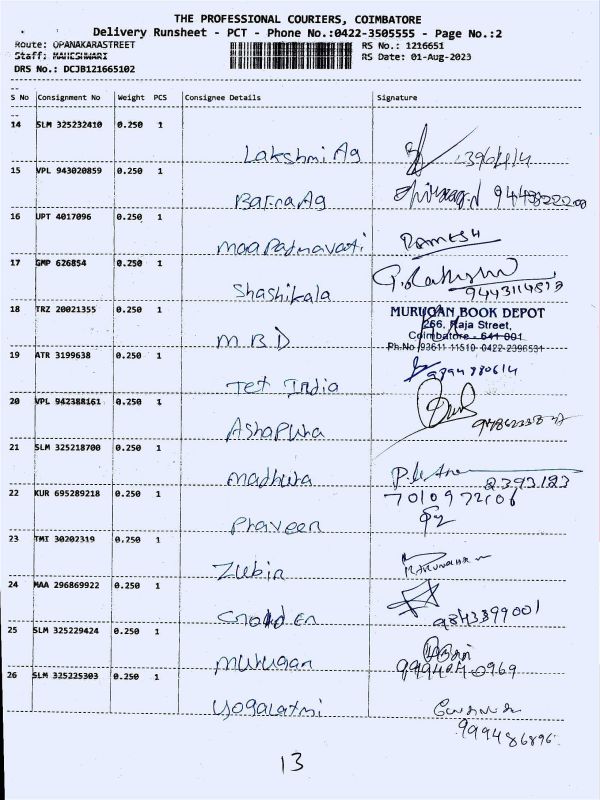 THE PROFESSIONAL COURIERS, COIMBATORE
Delivery Runsheet - PCT - Phone No.:0422-3505555 - Page No.:2
Route: OPANAKARASTREET
RS No.: 1216651
Staff: MAHESHWARI
RS Date: 01-Aug-2023
DRS No.: DCJB121665102
S No Consignment No Weight PCS Consignee Details Signature
14 SLM 325232410 0.250 1
Lakshmi Ag
15 VPL 943020859 0.250 1
Barna Ag
16 UPT 4017096 0.250 1
maa Patmavati RAMESH
17 GMP 626854 0.250 1
Shashikala
18 TRZ 20021355 0.250 1 MURUGAN BOOK DEPOT
266, Raja Street,
M B D Coimbatore - 641 001
Ph.No 93611 11510 0422-2396531
19 ATR 3199638 0.250 1
Tet India
20 VPL 942388161 0.250 1
Ashapura
21 SLM 325218700 0.250 1
madhura 2393123
22 KUR 695289218 0.250 1 7010972106
Praveen
23 TMI 30202319 0.250 1
Zubin
24 MAA 296869922 0.250 1
9843399001
25 SLM 325229424 0.250 1
Murugan
26 SLM 325225303 0.250 1
yogalatmi
999486896
13